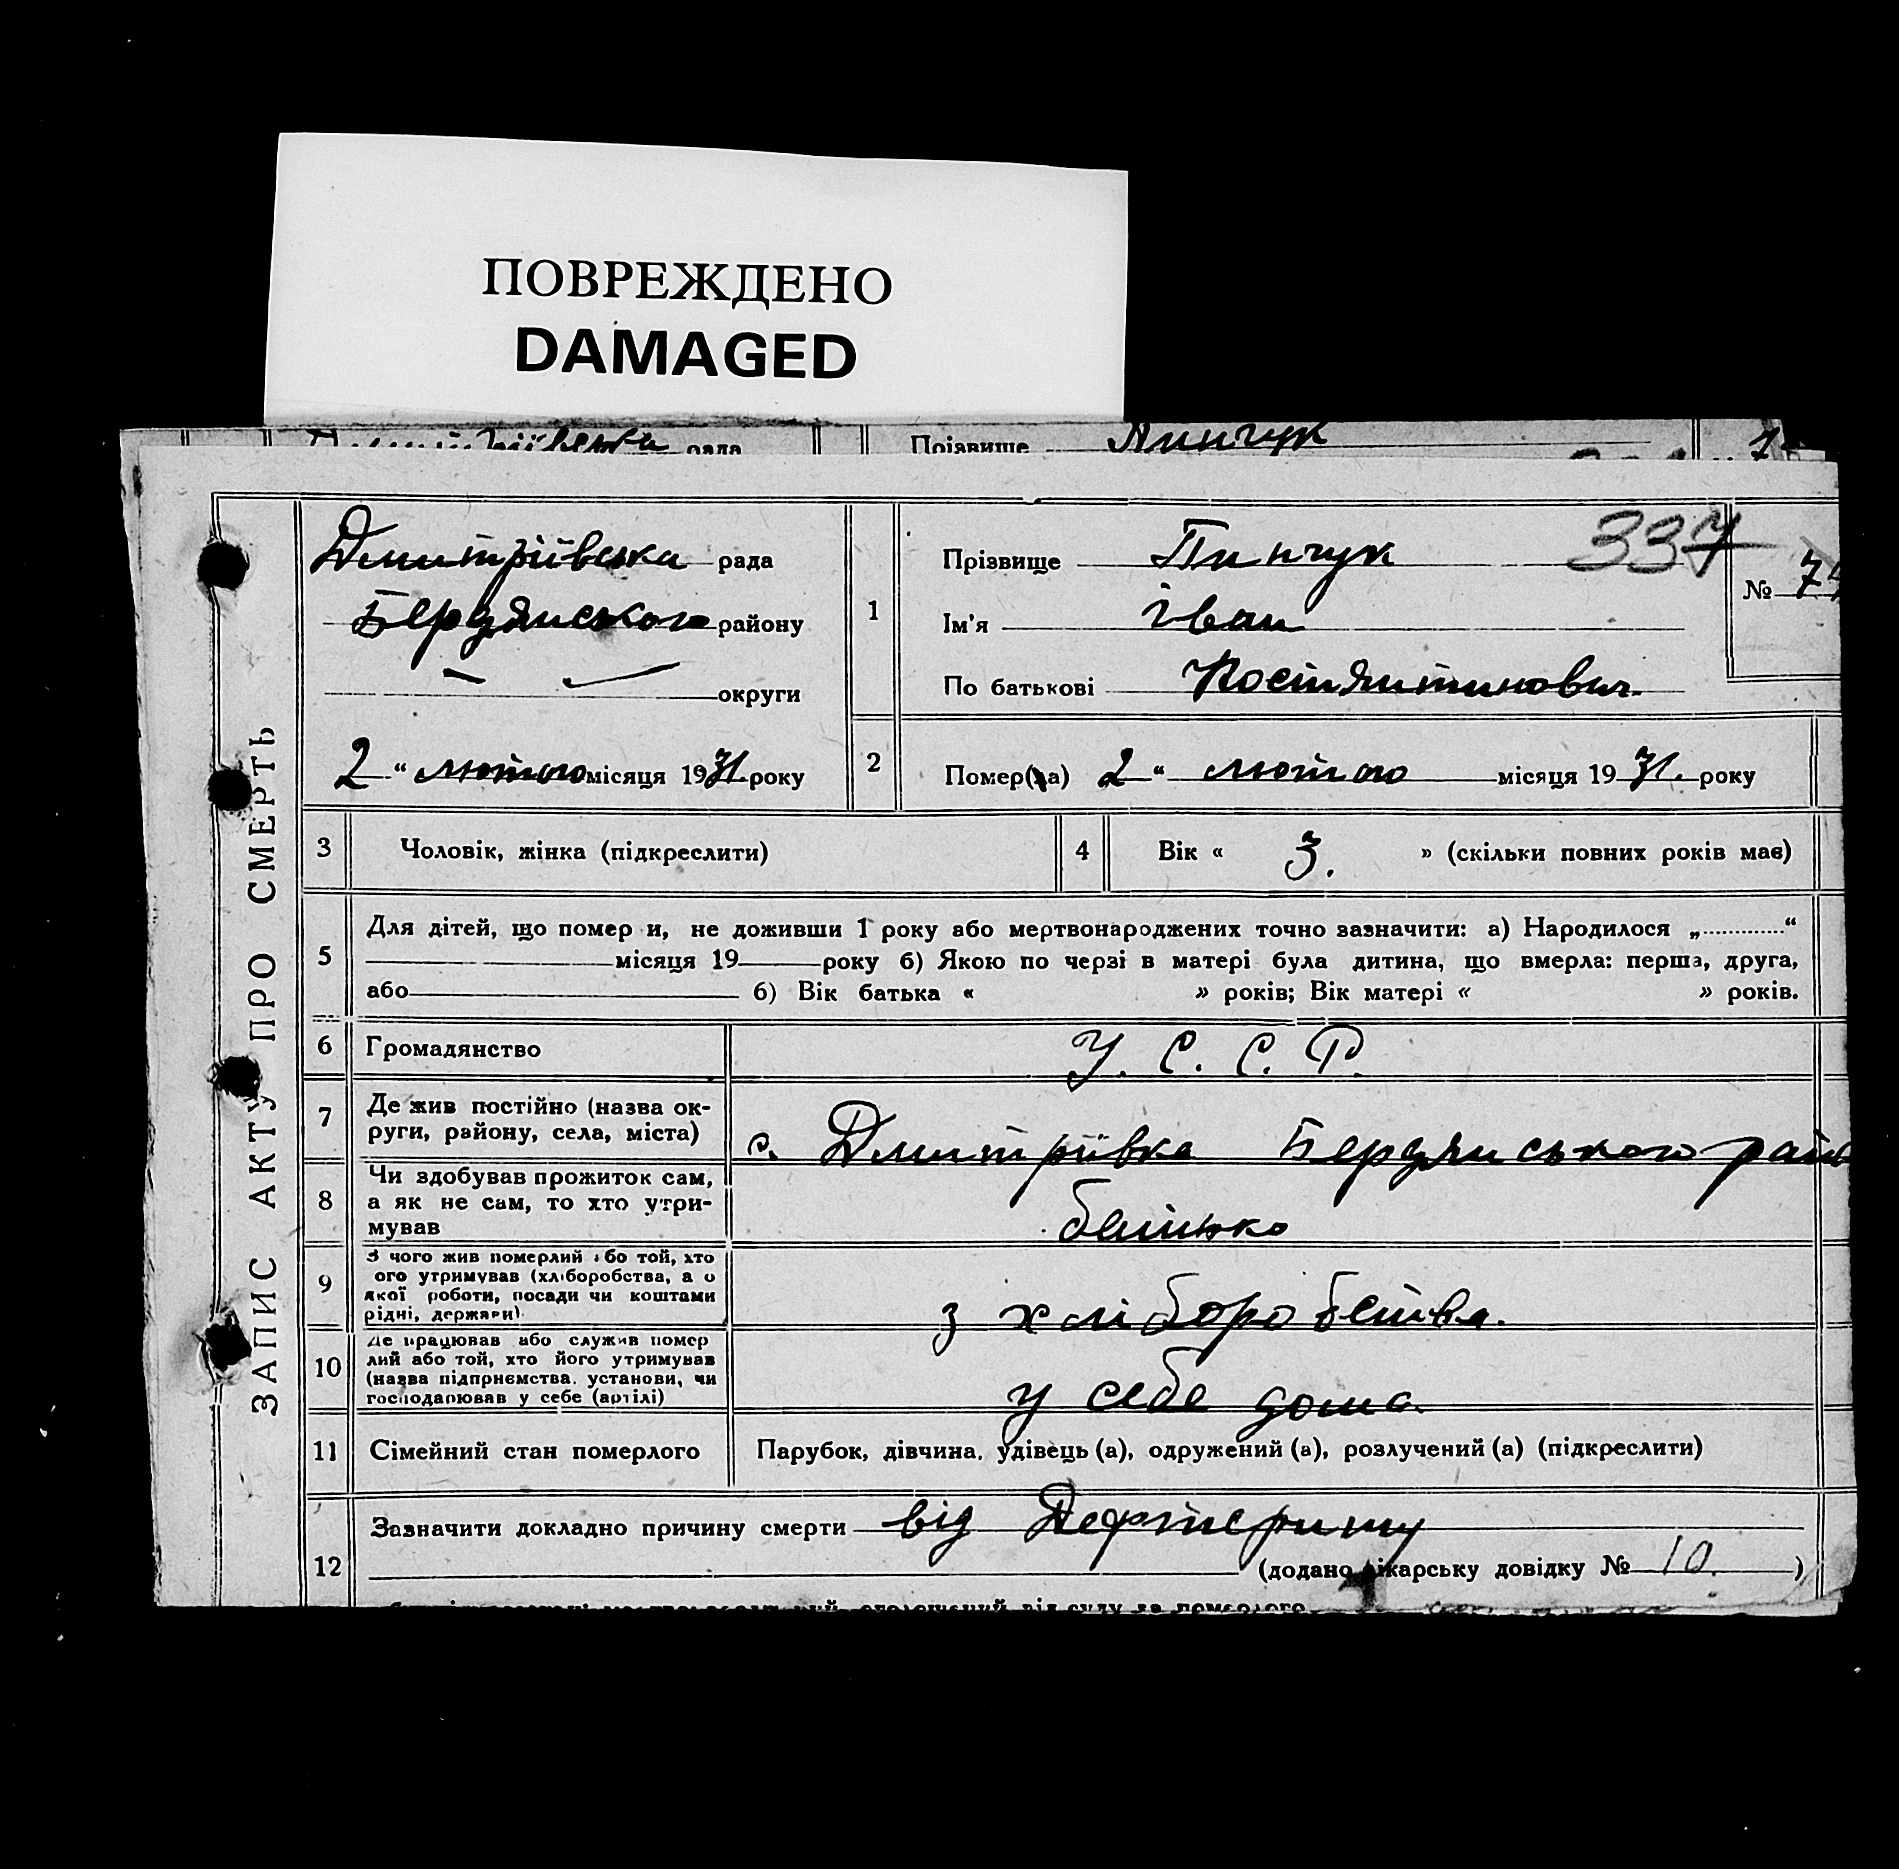 ПОВРЕЖДЕНО
DAMAGED
рада Прізвище Пинчук
Дмитріївська рада
Бердянського району
округи
2 “ лютого місяця 1931. року
1
Прізвище Пинчук
337
№
Ім'я Іван
По батькові Костянтинович.
2
Помер(ла) 2 “ лютого місяця 1931. року
ЗАПИС АКТУ ПРО СМЕРТЬ
3 Чоловік, жінка (підкреслити)
4 Вік « 3. » (скільки повних років має)
5 Для дітей, що помер и, не доживши 1 року або мертвонароджених точно зазначити: а) Народилося „............“
місяця 19 року б) Якою по черзі в матері була дитина, що вмерла: перша, друга,
або б) Вік батька « » років; Вік матері « » років.
6 Громадянство У. С. С. Р.
7 Де жив постійно (назва ок-
руги, району, села, міста)
с. Дмитріївка Бердянського рай
8 Чи здобував прожиток сам,
а як не сам, то хто утри-
мував
батько
9 З чого жив померлий або той, хто
ого утримував (хліборобства, а о
якої роботи, посади чи коштами
рідні, держави)
з хліборобства.
10 Де працював або служив помер
лий або той, хто його утримував
(назва підприємства. установи, чи
господарював у себе (артілі)
у себе дома.
11 Сімейний стан померлого Парубок, дівчина, удівець (а), одружений (а), розлучений (а) (підкреслити)
12 Зазначити докладно причину смерти від Дефтериту
(додано лікарську довідку № 10. )